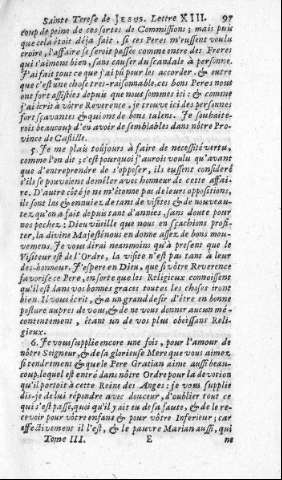 Sainte Terese de JESUS. Lettre XIII. 97
coup de peine de ces sortes de Commissions; mais puis
que cela étoit déja fait, si ces Peres m'eussent voulu
croire, l'affaire se seroit passée comme entre des Freres
qui s'aiment bien, sans causer du scandale à personne.
J'ai fait tout ce que j'ai pû pour les accorder, & outre
que c'est une chose tres-raisonnable, ces bons Peres nous
ont fort assistées depuis que nous sommes ici: & comme
j'ai écrit à vôtre Reverence, je trouve ici des personnes
fort sçavantes & qui ont de bons talens. Je souhaite-
rois beaucoup d'en avoir de semblables dans nôtre Pro-
vince de Castille.
5. Je me plais toûjours à faire de necessité vertu,
comme l'on dit; c'est pourquoi j'aurois voulu qu'avant
que d'entreprendre de s'opposer, ils eussent consideré
s'ils se pouvoient démêler avec honneur de cette affai-
re. D'autre côté je ne m'étonne pas de leurs oppositions,
ils sont las & ennuiez de tant de visites & de nouveau-
tez qu'on a fait depuis tant d'années, sans doute pour
nos pechez; Dieu vüeille que nous en sçachions profi-
ter, la divine Majesté nous en donne assez de bons mou-
vemens. Je vous dirai neanmoins qu'à present que le
Visiteur est de l'Ordre, la visite n'est pas tant à leur
des-honneur. J'espere en Dieu, que si vôtre Reverence
favorise ce Pere, en sorte que les Religieux connoissent
qu'il est dans vos bonnes graces toutes les choses iront
bien. Il vous écrit, & a un grand desir d'être en bonne
posture aupres de vous, & de ne vous donner aucun mé-
contentement, étant un de vos plus obeïssans Reli-
gieux.
6. Je vous supplie encore une fois, pour l'amour de
nôtre Seigneur, & de sa glorieuse Mere que vous aimez
si tendrement & que le Pere Gratian aime aussi beau-
coup, lequel est entré dans nôtre Ordre pour la devotion
qu'il portoit à cette Reine des Anges: je vous supplie
dis-je de lui répondre avec douceur, d'oublier tout ce
qui s'est passé, quoi qu'il y ait eu de sa faute, & de le re-
cevoir pour vôtre enfant & pour vôtre Inferieur; car
effectivement il l'est, & le pauvre Marian aussi, qui
Tome III. E ne